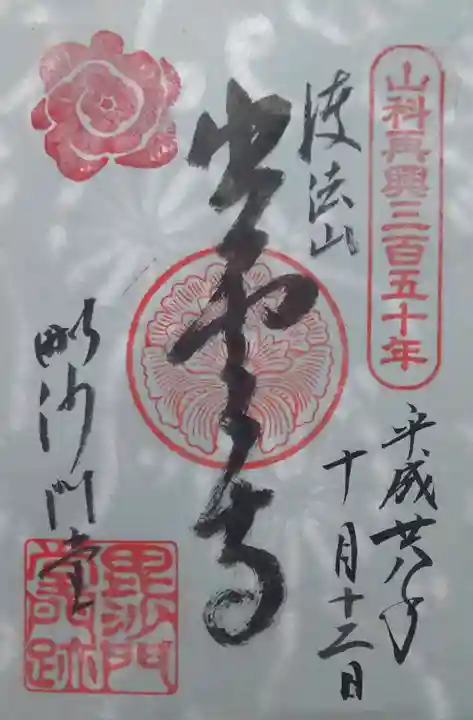 山科再興三百五十年
平成廿八年
十月十二日
護法山
出雲寺
毗沙門堂
毘沙門
堂門跡